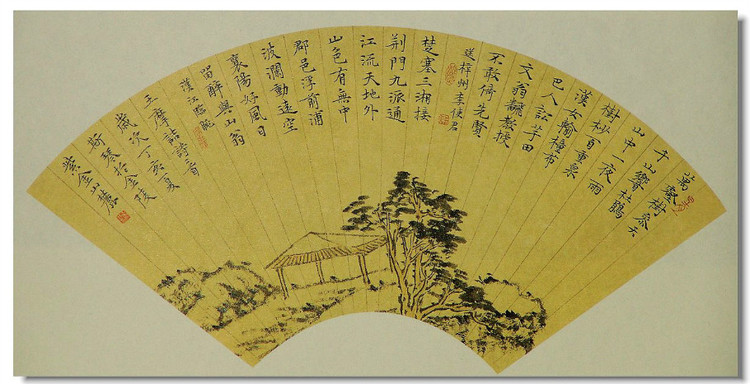 萬壑樹參天
千山響杜鵑
山中一夜雨
樹杪百重泉
漢女輸橦布
巴人訟芋田
文翁飜教授
不敢倚先賢
送梓州李使君
楚塞三湘接
荆門九派通
江流天地外
山色有無中
郡邑浮前浦
波瀾動遠空
襄陽好風日
留醉與山翁
漢江臨眺
王摩詰詩二首
歲次丁亥夏
於金陵
紫金山麓